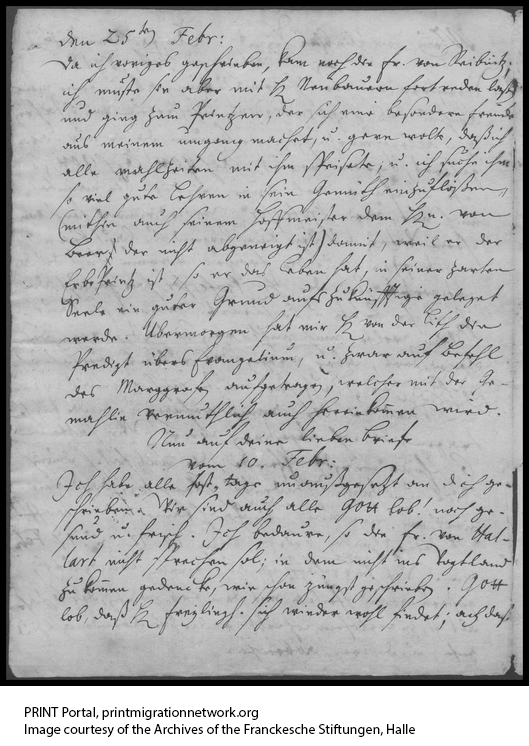 den 25ten Febr:
Da ich voriges geschrieben, kam noch die Fr. von
ich muste sie aber mit H Neubauern fort reden laßen
und ging zum Printzen, der sich eine besondere freude
aus meinem umgang machet, u. gern wolte, daß ich
alle mahlzeiten mit ihm speisete, u. ich suche ihm
so viel gute Lehren in sein Gemüth einzuflößen,
(mithin auch seinem Hoffmeister dem Hn. von
der nicht abgeneigt ist) damit, weil er der
ErbPrintz ist so er das leben hat, in seiner zarten
Seele ein guter Grund aufs zukünfftige geleget
werde. Ubermorgen hat mir H von der Lith die
Predigt übers Evangelium, u. zwar auf befehl
des Marggrafen aufgetragen, welcher mit der Ge-
mahlin vermuthlich auch hereinkommen wird.
Nun auf deine lieben briefe
vom 10. Febr:
Ich habe alle fast tage unausgesetzt an dich ge-
schrieben. Wir sind auch alle Gott lob! noch ge-
sund u. frisch. Ich bedaure, so die Fr. von Hal-
lart nicht sprechen sol; in dem nicht ins Vogtland
zu kommen gedencke, wie schon jüngst geschrieben. Gott
lob, daß H Freylingh. sich wieder wohl findet; ach daß
PRINT Portal, printmigrationnetwork.org
Image courtesy of the Archives of the Franckesche Stiftungen, Halle